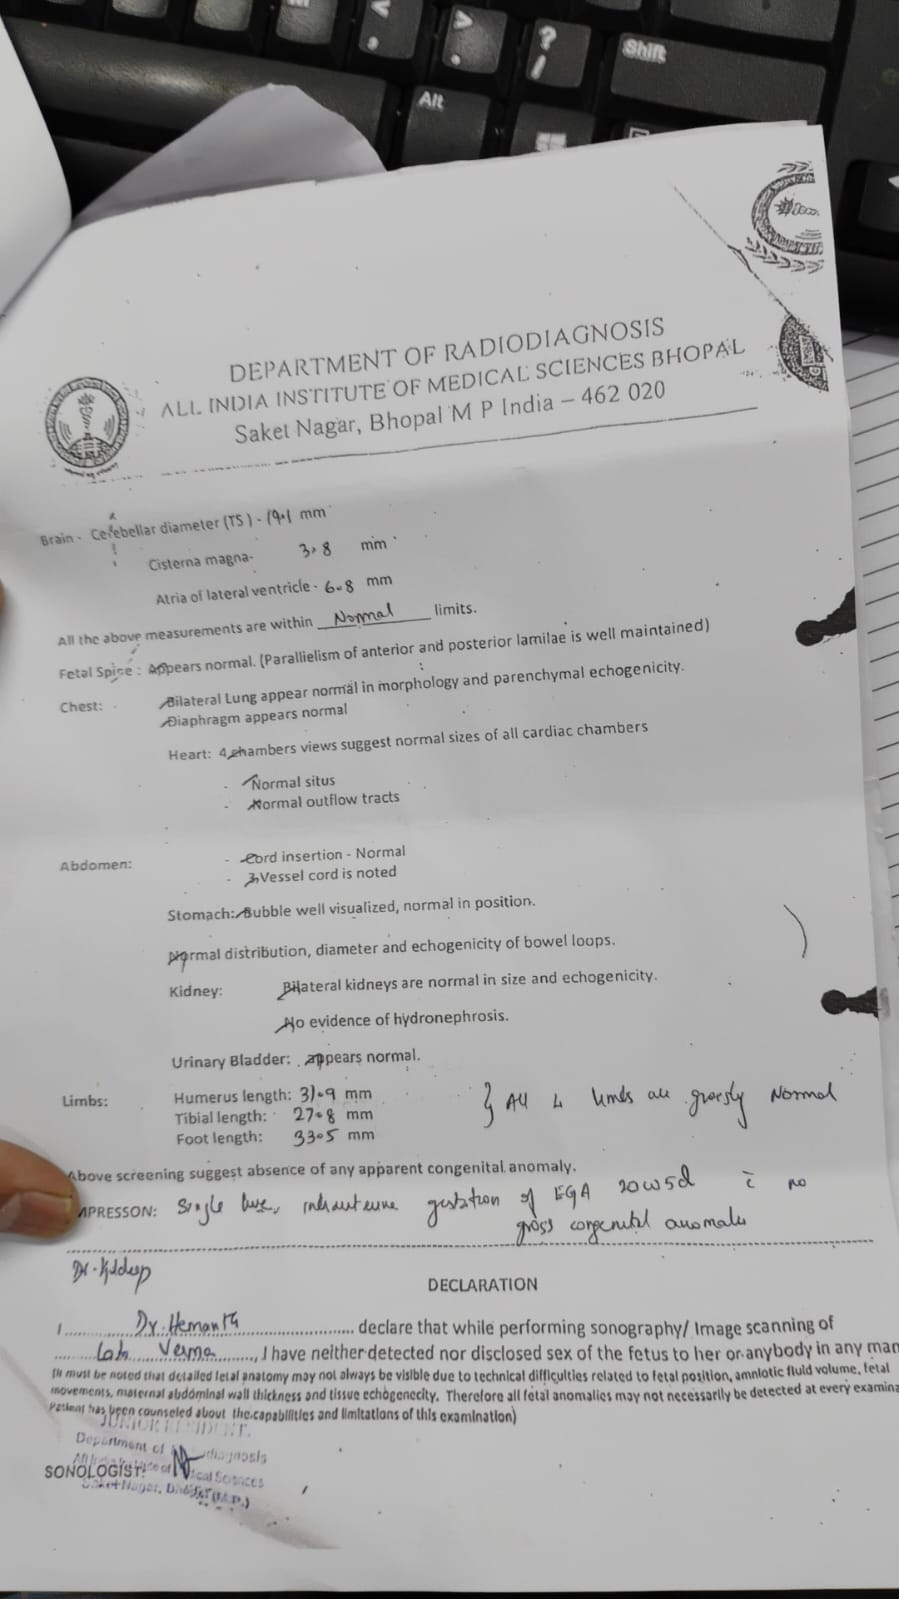 Shift
Alt
DEPARTMENT OF RADIODIAGNOSIS
ALL INDIA INSTITUTE OF MEDICAL SCIENCES BHOPAL
Saket Nagar, Bhopal M P India – 462 020
Brain - Cerebellar diameter (TS) - 19.1 mm
Cisterna magna- 3.8 mm
Atria of lateral ventricle - 6.8 mm
All the above measurements are within Normal limits.
Fetal Spine : Appears normal. (Parallielism of anterior and posterior lamilae is well maintained)
Chest: Bilateral Lung appear normal in morphology and parenchymal echogenicity.
Diaphragm appears normal
Heart: 4 chambers views suggest normal sizes of all cardiac chambers
- Normal situs
- Normal outflow tracts
Abdomen: - Cord insertion - Normal
- 3 Vessel cord is noted
Stomach: Bubble well visualized, normal in position.
Normal distribution, diameter and echogenicity of bowel loops.
Kidney: Bilateral kidneys are normal in size and echogenicity.
No evidence of hydronephrosis.
Urinary Bladder: appears normal.
Limbs: Humerus length: 31.9 mm } All 4 limbs are grossly Normal
Tibial length: 27.8 mm
Foot length: 33.5 mm
Above screening suggest absence of any apparent congenital anomaly.
MPRESSON: Single live, intrauterine gestation of EGA 20w5d c̄ no
gross congenital anomaly
DECLARATION
I Dr. Hemanth declare that while performing sonography/ Image scanning of
Verma, I have neither detected nor disclosed sex of the fetus to her or anybody in any man
(It must be noted that detailed fetal anatomy may not always be visible due to technical difficulties related to fetal position, amniotic fluid volume, fetal
movements, maternal abdominal wall thickness and tissue echogenecity. Therefore all fetal anomalies may not necessarily be detected at every examina
Patient has been counseled about the capabilities and limitations of this examination)
JUNIOR RESIDENT
Department of
SONOLOGIST:
Saket Nagar, (M.P.)